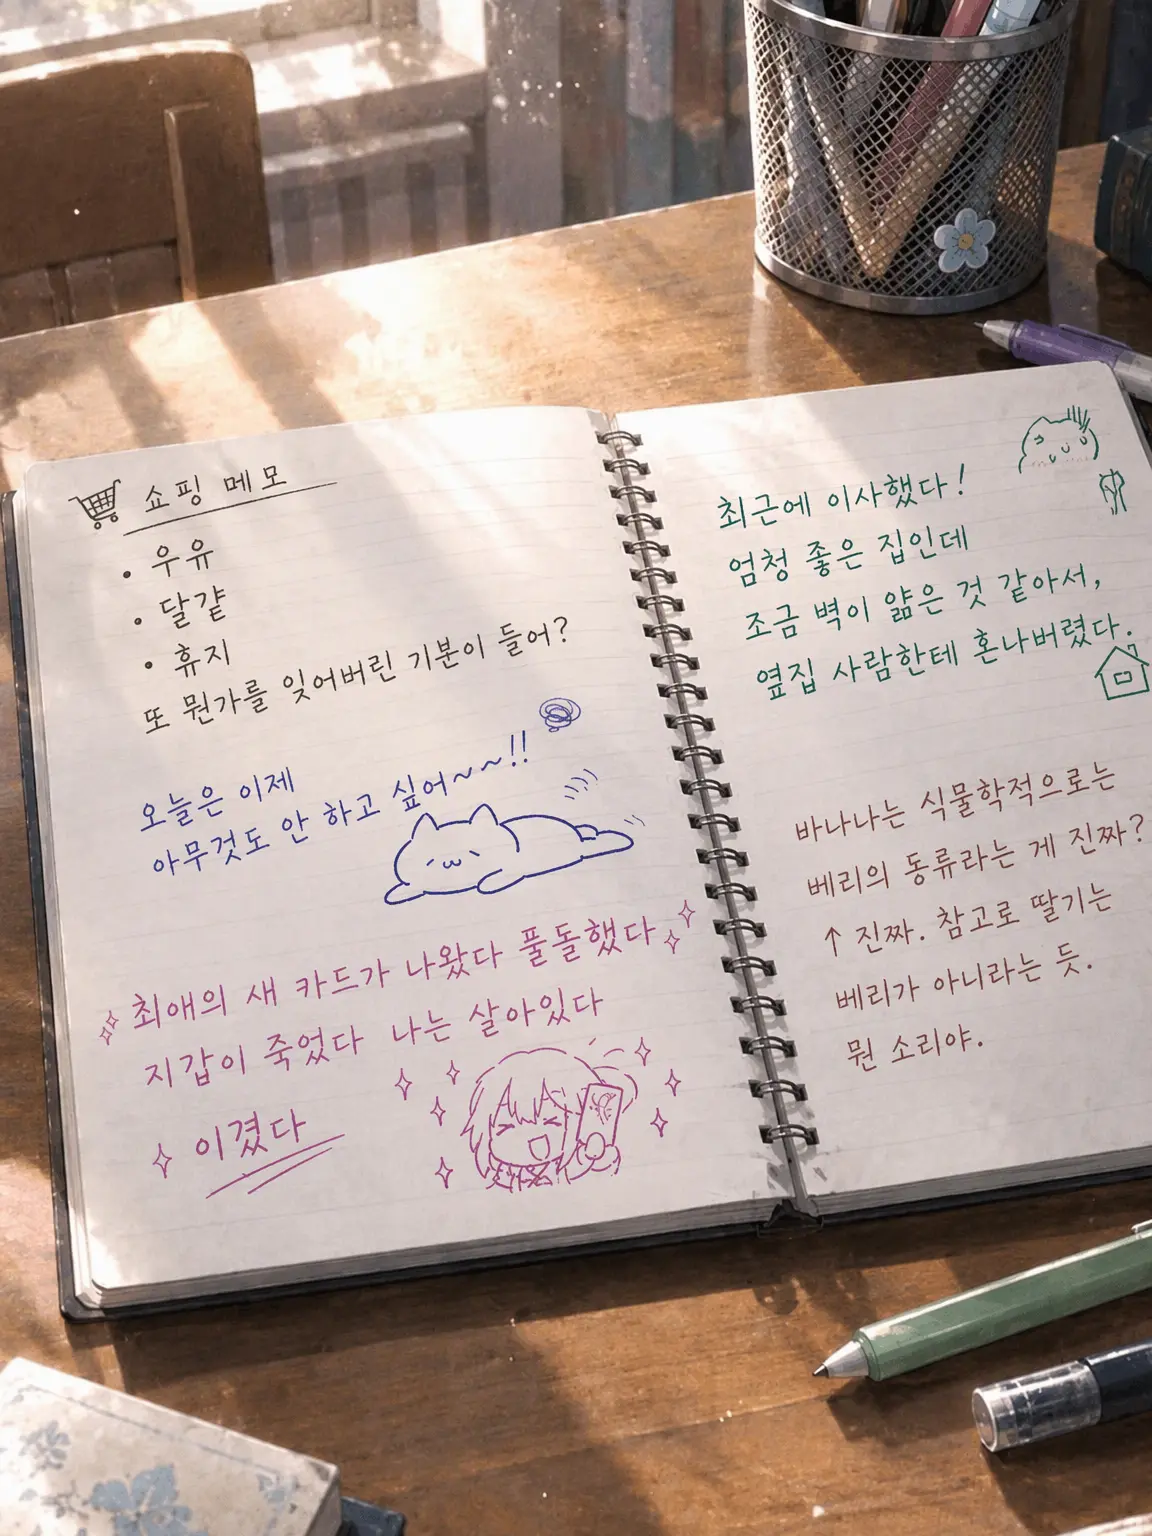 쇼핑 메모
• 우유
• 달걀
• 휴지
또 뭔가를 잊어버린 기분이 들어?
오늘은 이제
아무것도 안 하고 싶어~~!!
최애의 새 카드가 나왔다 풀돌했다
지갑이 죽었다 나는 살아있다
이겼다
최근에 이사했다!
엄청 좋은 집인데
조금 벽이 얇은 것 같아서,
옆집 사람한테 혼나버렸다.
바나나는 식물학적으로는
베리의 동류라는 게 진짜?
↑ 진짜. 참고로 딸기는
베리가 아니라는 듯.
뭔 소리야.